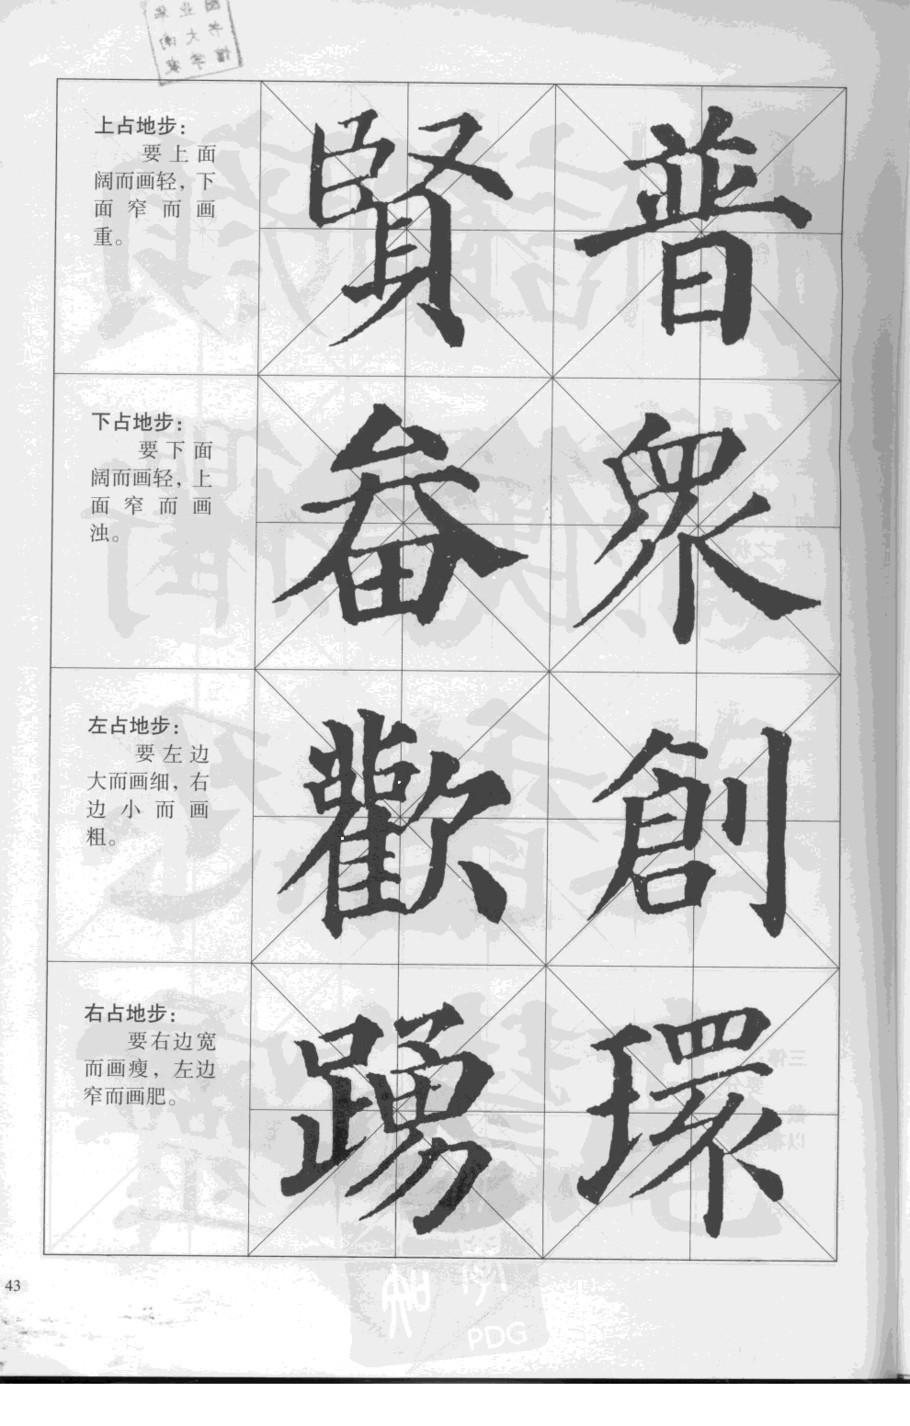 上占地步：
要上面
阔而画轻，下
面窄而画
重。
普
賢
下占地步：
要下面
阔而画轻，上
面窄而画
浊。
眾
畚
左占地步：
要左边
大而画细，右
边小而画
粗。
創
歡
右占地步：
要右边宽
而画瘦，左边
窄而画肥。
環
踴
43
PDG